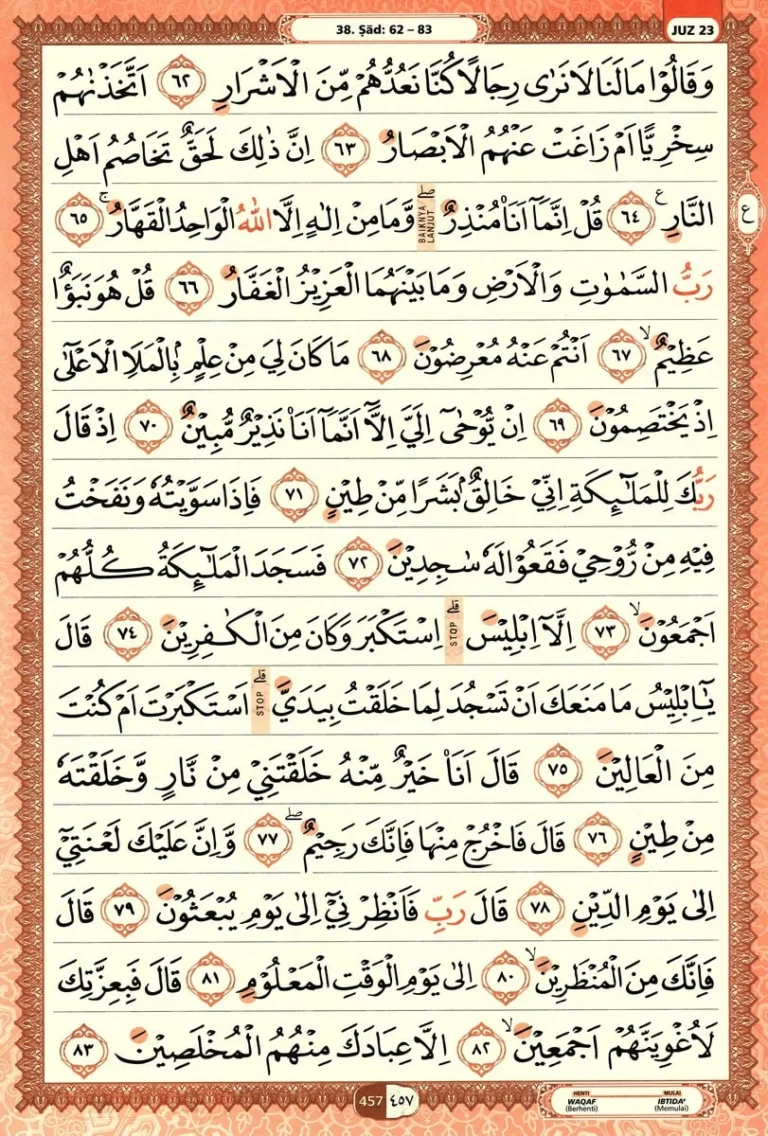 38. Ṣād: 62 – 83
JUZ 23
وَقَالُوْا مَا لَنَا لَا نَرٰى رِجَالًا كُنَّا نَعُدُّهُمْ مِّنَ الْاَشْرَارِ ٦٢ اَتَّخَذْنٰهُمْ
سِخْرِيًّا اَمْ زَاغَتْ عَنْهُمُ الْاَبْصَارُ ٦٣ اِنَّ ذٰلِكَ لَحَقٌّ تَخَاصُمُ اَهْلِ
النَّارِ ࣖ ٦٤ قُلْ اِنَّمَآ اَنَا۠ مُنْذِرٌ ۖ BAIKNYA LANJUT وَّمَا مِنْ اِلٰهٍ اِلَّا اللّٰهُ الْوَاحِدُ الْقَهَّارُ ۚ ٦٥
ع
رَبُّ السَّمٰوٰتِ وَالْاَرْضِ وَمَا بَيْنَهُمَا الْعَزِيْزُ الْغَفَّارُ ٦٦ قُلْ هُوَ نَبَؤٌا
عَظِيْمٌ ۙ ٦٧ اَنْتُمْ عَنْهُ مُعْرِضُوْنَ ٦٨ مَا كَانَ لِيَ مِنْ عِلْمٍ ۢ بِالْمَلَاِ الْاَعْلٰٓى
اِذْ يَخْتَصِمُوْنَ ٦٩ اِنْ يُّوْحٰىٓ اِلَيَّ اِلَّآ اَنَّمَآ اَنَا۠ نَذِيْرٌ مُّبِيْنٌ ٧٠ اِذْ قَالَ
رَبُّكَ لِلْمَلٰۤىِٕكَةِ اِنِّيْ خَالِقٌ ۢ بَشَرًا مِّنْ طِيْنٍ ٧١ فَاِذَا سَوَّيْتُهٗ وَنَفَخْتُ
فِيْهِ مِنْ رُّوْحِيْ فَقَعُوْا لَهٗ سٰجِدِيْنَ ٧٢ فَسَجَدَ الْمَلٰۤىِٕكَةُ كُلُّهُمْ
اَجْمَعُوْنَ ۙ ٧٣ اِلَّآ اِبْلِيْسَ ۗ STOP اِسْتَكْبَرَ وَكَانَ مِنَ الْكٰفِرِيْنَ ٧٤ قَالَ
يٰٓاِبْلِيْسُ مَا مَنَعَكَ اَنْ تَسْجُدَ لِمَا خَلَقْتُ بِيَدَيَّ ۗ STOP اَسْتَكْبَرْتَ اَمْ كُنْتَ
مِنَ الْعَالِيْنَ ٧٥ قَالَ اَنَا۠ خَيْرٌ مِّنْهُ خَلَقْتَنِيْ مِنْ نَّارٍ وَّخَلَقْتَهٗ
مِنْ طِيْنٍ ٧٦ قَالَ فَاخْرُجْ مِنْهَا فَاِنَّكَ رَجِيْمٌ ۖ ٧٧ وَّاِنَّ عَلَيْكَ لَعْنَتِيْٓ
اِلٰى يَوْمِ الدِّيْنِ ٧٨ قَالَ رَبِّ فَاَنْظِرْنِيْٓ اِلٰى يَوْمِ يُبْعَثُوْنَ ٧٩ قَالَ
فَاِنَّكَ مِنَ الْمُنْظَرِيْنَ ۙ ٨٠ اِلٰى يَوْمِ الْوَقْتِ الْمَعْلُوْمِ ٨١ قَالَ فَبِعِزَّتِكَ
لَاُغْوِيَنَّهُمْ اَجْمَعِيْنَ ۙ ٨٢ اِلَّا عِبَادَكَ مِنْهُمُ الْمُخْلَصِيْنَ ٨٣
457 ٤٥٧
HENTI WAQAF (Berhenti)
MULAI IBTIDA' (Memulai)